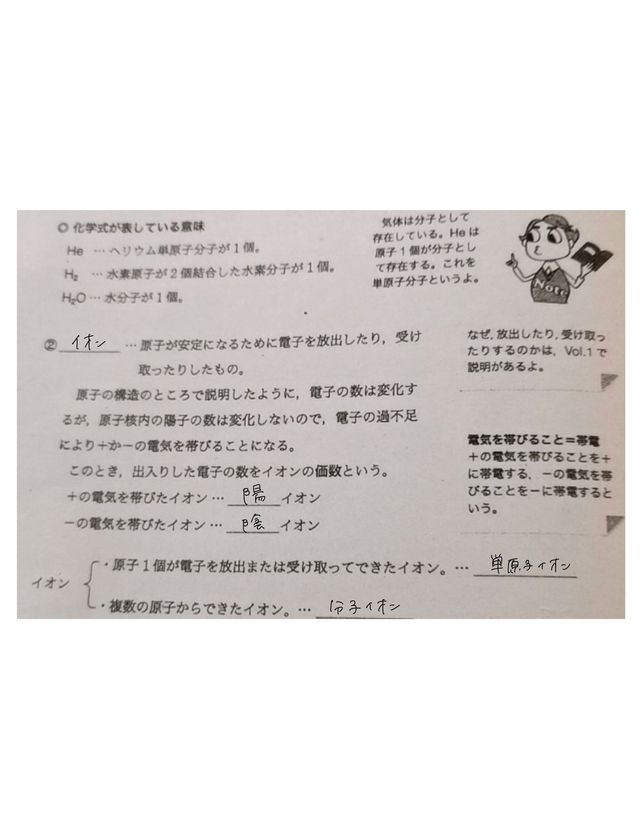 ◎ 化学式が表している意味
He … ヘリウム単原子分子が1個。
H₂ … 水素原子が2個結合した水素分子が1個。
H₂O … 水分子が1個。
気体は分子として
存在している。Heは
原子1個が分子とし
て存在する。これを
単原子分子というよ。
Note
② イオン … 原子が安定になるために電子を放出したり，受け
取ったりしたもの。
原子の構造のところで説明したように，電子の数は変化す
るが，原子核内の陽子の数は変化しないので，電子の過不足
により＋か－の電気を帯びることになる。
このとき，出入りした電子の数をイオンの価数という。
＋の電気を帯びたイオン … 陽イオン
－の電気を帯びたイオン … 陰イオン
なぜ，放出したり，受け取っ
たりするのかは，Vol.1で
説明があるよ。
電気を帯びること＝帯電
＋の電気を帯びることを＋
に帯電する，－の電気を帯
びることを－に帯電すると
いう。
イオン
・原子1個が電子を放出または受け取ってできたイオン。… 単原子イオン
・複数の原子からできたイオン。… 分子イオン